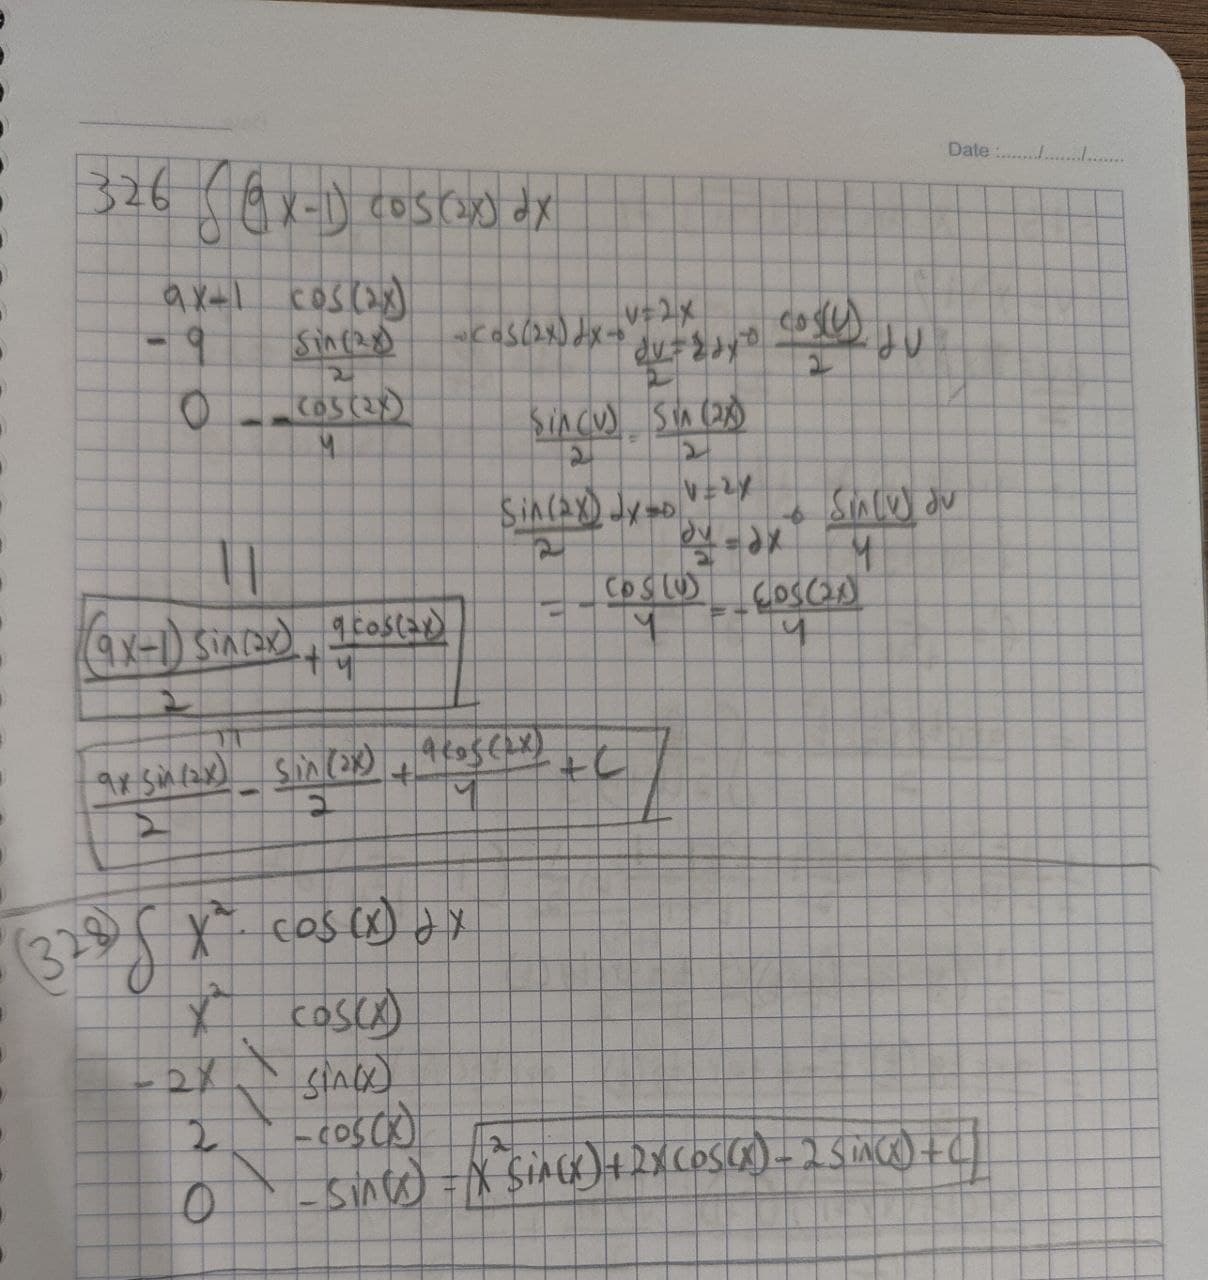 Date :......../......../........
326 ∫ (9x-1) cos(2x) dx
9x-1 cos(2x)
-9 sin(2x)/2 → cos(2x) dx → u=2x du/2=2dx → cos(u)/2 du
0 - -cos(2x)/4 sin(u)/2 = sin(2x)/2
sin(2x)/2 dx → u=2x du/2=dx → sin(u) du/4
= -cos(u)/4 = -cos(2x)/4
11
(9x-1) sin(2x)/2 + 9cos(2x)/4
11
9x sin(2x)/2 - sin(2x)/2 + 9cos(2x)/4 + C
(328) ∫ x² · cos(x) dx
x² cos(x)
-2x sin(x)
2 -cos(x)
0 -sin(x) = x² sin(x) + 2x cos(x) - 2 sin(x) + C